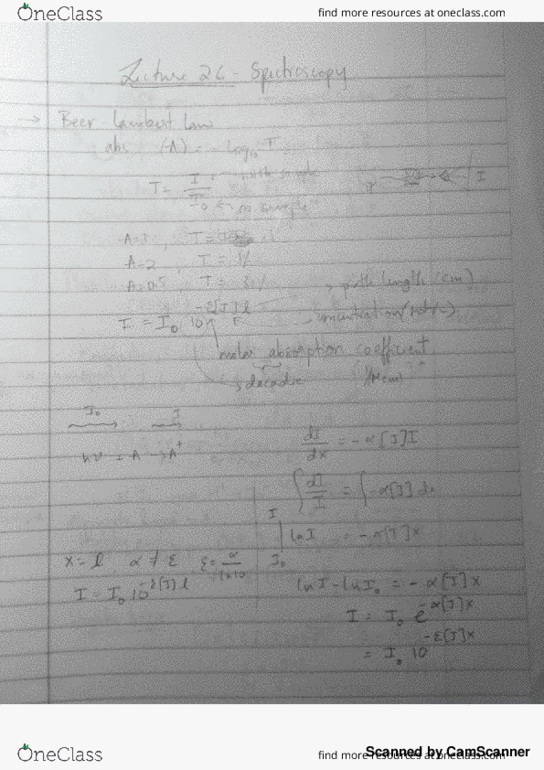 OneClass
find more resources at oneclass.com
Lecture 26 - Spectroscopy
→ Beer-Lambert Law
abs (A) = - log₁₀ T
T = I / I₀ ← with sample
← no sample
I
A=1, T =
A=2, T = 1%
A=0.5 T = 31%
→ path length (cm)
I = I₀ 10^(-ε[J]l)
→ concentration (mol/L)
molar absorption coefficient
→ decadic
I₀ → I →
hν + A → A⁺
dI/dx = -α[J]I
∫ dI/I = ∫ α[J] dx
I | I₀ ln I = -α[J]x
x = l, α ≠ ε ε = α / ln 10
ln I - ln I₀ = - α[J]x
I = I₀ 10^(-ε[J]l)
I = I₀ e^(-α[J]x)
= I₀ 10^(-ε[J]x)
OneClass
find more resources at oneclass.com
Scanned by CamScanner